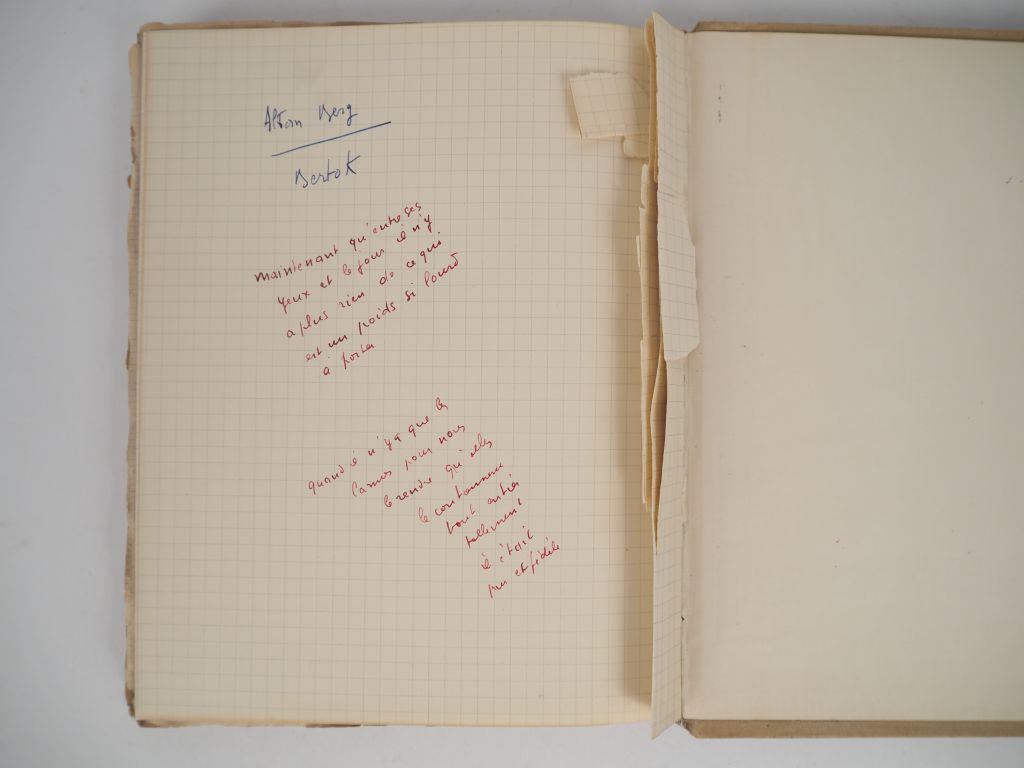 Alban Berg
Bartok
maintenant qu'entre ses
yeux et le jour il n'y
a plus rien de ce qui
est un poids si lourd
à porter
quand il n'y a que les
larmes pour nous
le rendre qu'elles
le contiennent
tout entier
tellement
il était
pur et fidèle